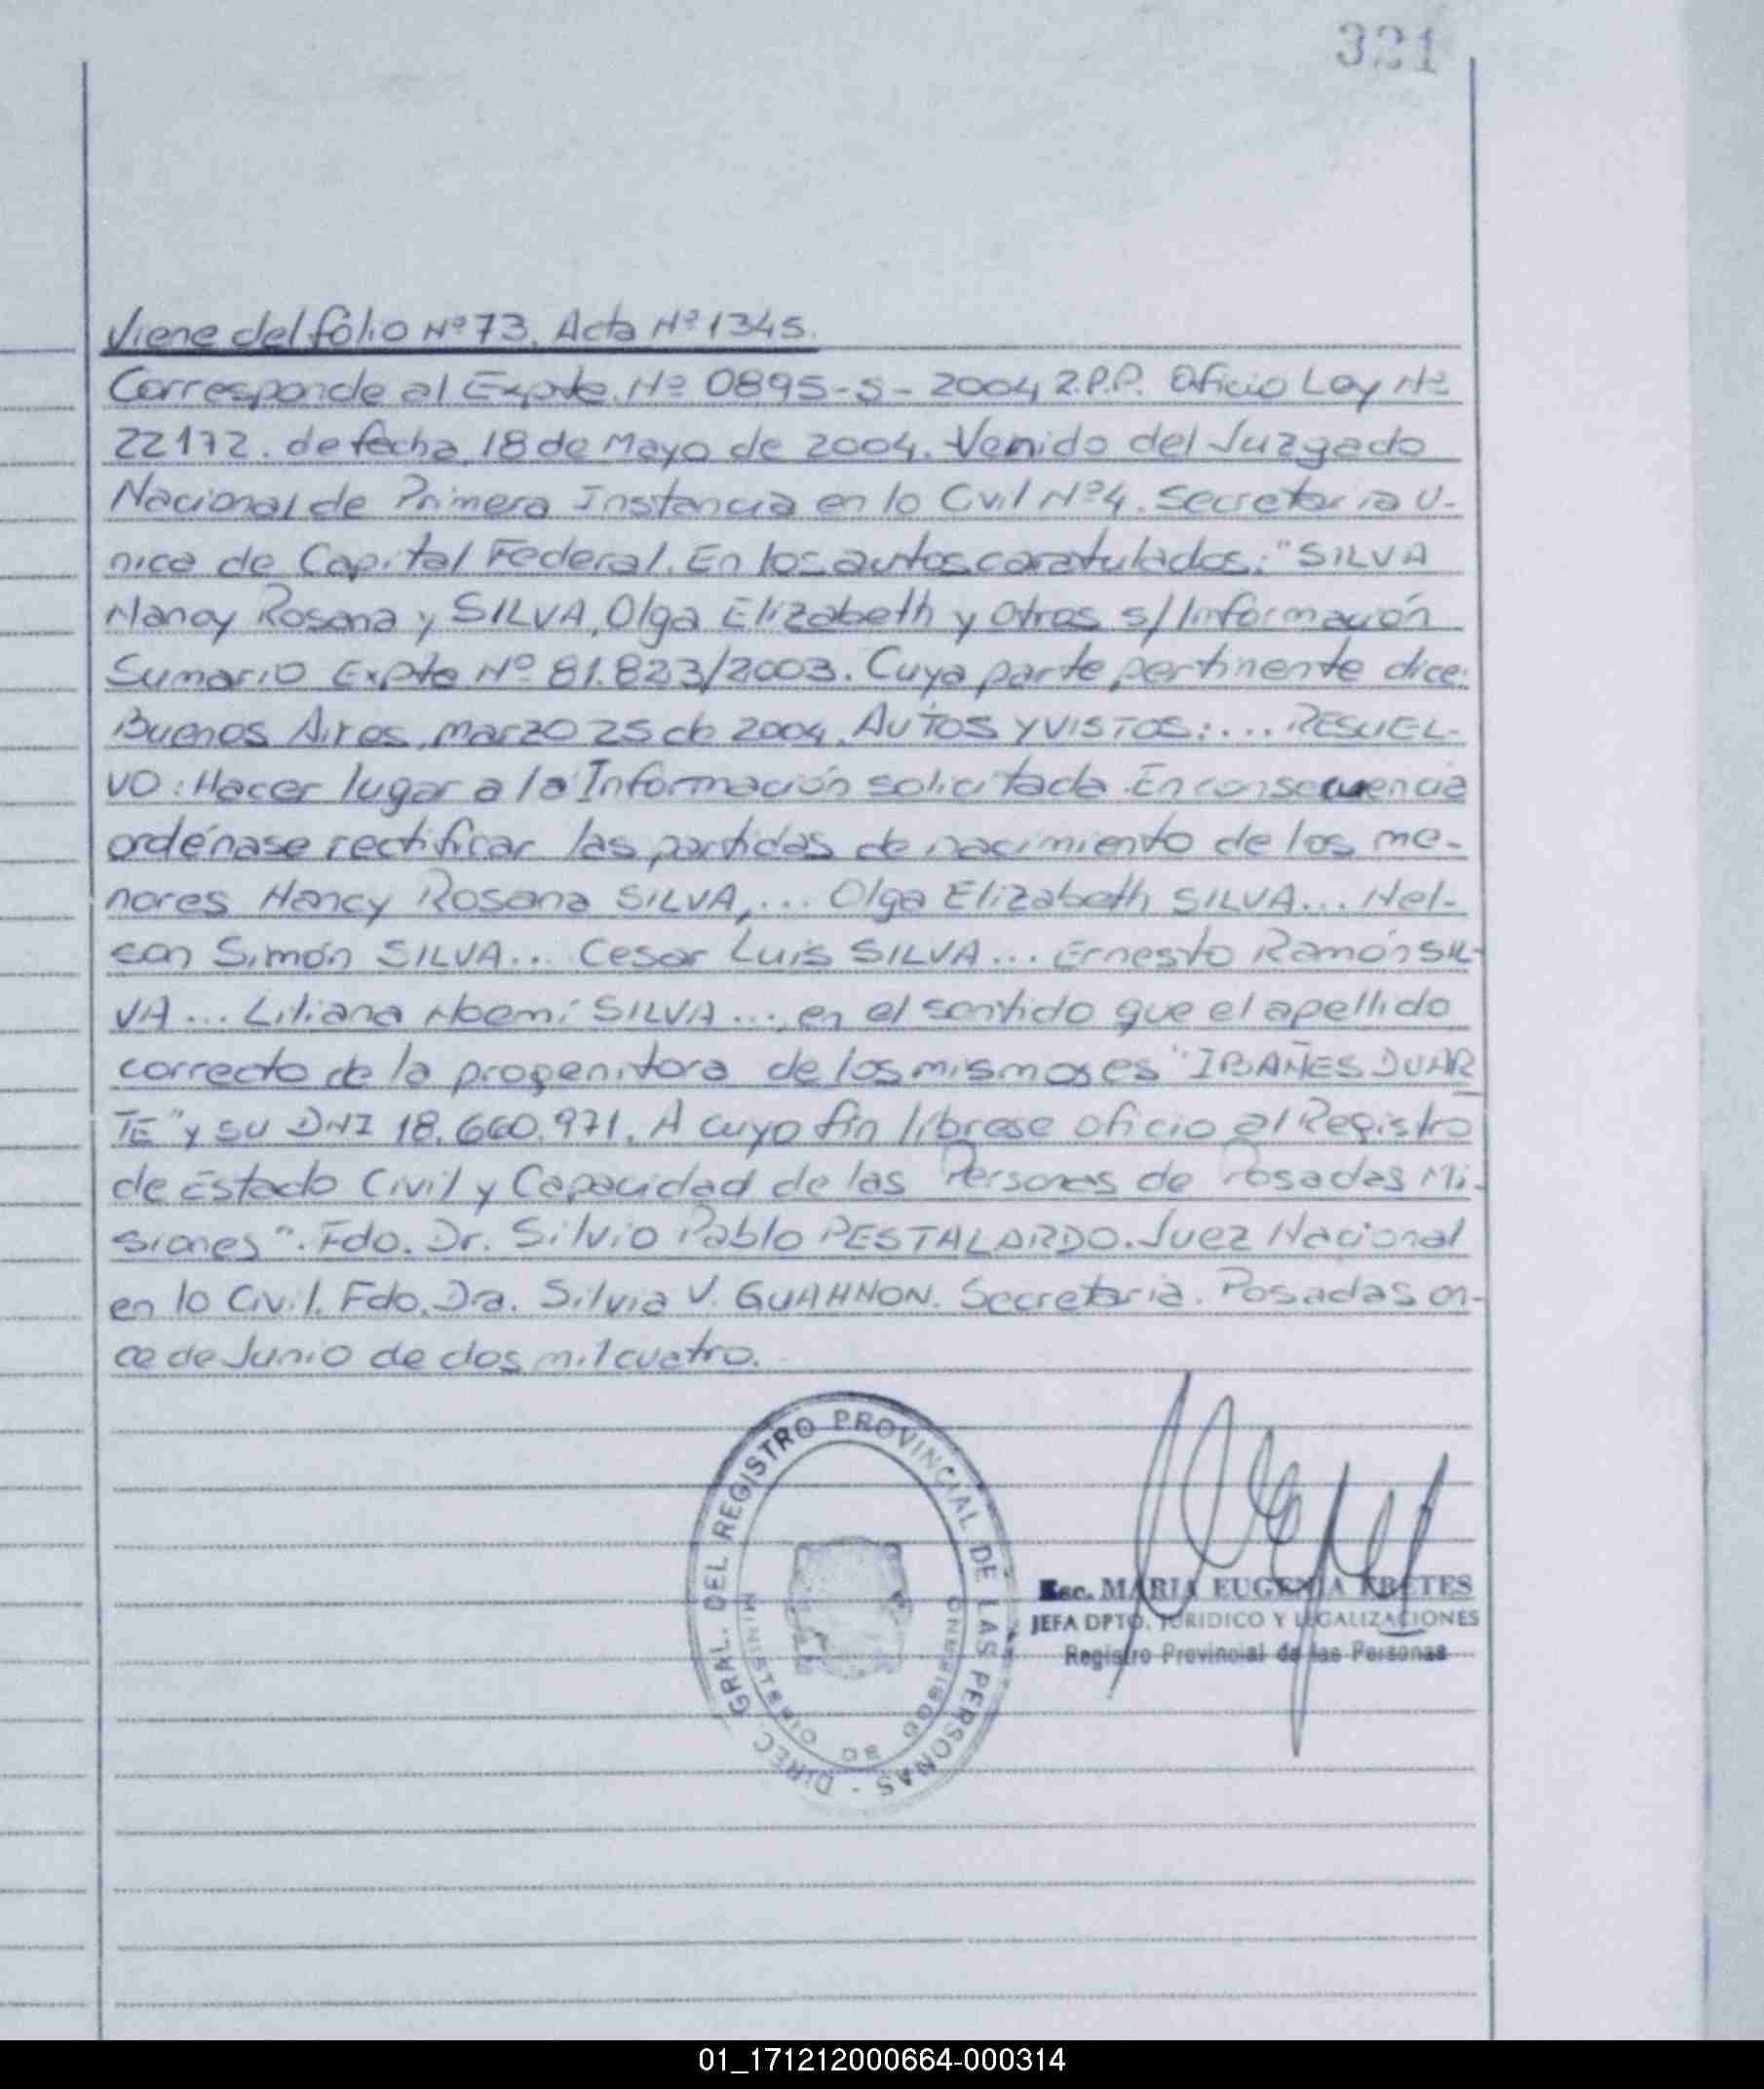 321
Viene del folio Nº 73. Acta Nº 1345.
Corresponde al Expte. Nº 0895-S-2004 R.P.P. Oficio Ley Nº
22172. de fecha 18 de Mayo de 2004. Venido del Juzgado
Nacional de Primera Instancia en lo Civil Nº 4. Secretaria U-
nica de Capital Federal. En los autos caratulados: "SILVA
Nancy Rosana y SILVA, Olga Elizabeth y Otros s/Información
Sumario Expte Nº 81.823/2003. Cuya parte pertinente dice:
Buenos Aires, marzo 25 de 2004. AUTOS Y VISTOS:... RESUEL-
VO: Hacer lugar a la Información solicitada. En consecuencia
ordénase rectificar las partidas de nacimiento de los me-
nores Nancy Rosana SILVA,... Olga Elizabeth SILVA... Nel-
son Simón SILVA... Cesar Luis SILVA... Ernesto Ramón SIL-
VA... Liliana Noemí SILVA..., en el sentido que el apellido
correcto de la progenitora de los mismos es "IBAÑES DUAR
TE" y su DNI 18.660.971. A cuyo fin líbrese oficio al Registro
de Estado Civil y Capacidad de las Personas de Posadas Mi-
siones". Fdo. Dr. Silvio Pablo PESTALARDO. Juez Nacional
en lo Civil. Fdo. Dra. Silvia V. GUAHNON. Secretaria. Posadas on-
ce de Junio de dos mil cuatro.
DIREC. GRAL. DEL REGISTRO PROVINCIAL DE LAS PERSONAS -
MINISTERIO DE GOBIERNO
Esc. MARIA EUGENIA KRETES
JEFA DPTO. JURIDICO Y LEGALIZACIONES
Registro Provincial de las Personas
01_171212000664-000314